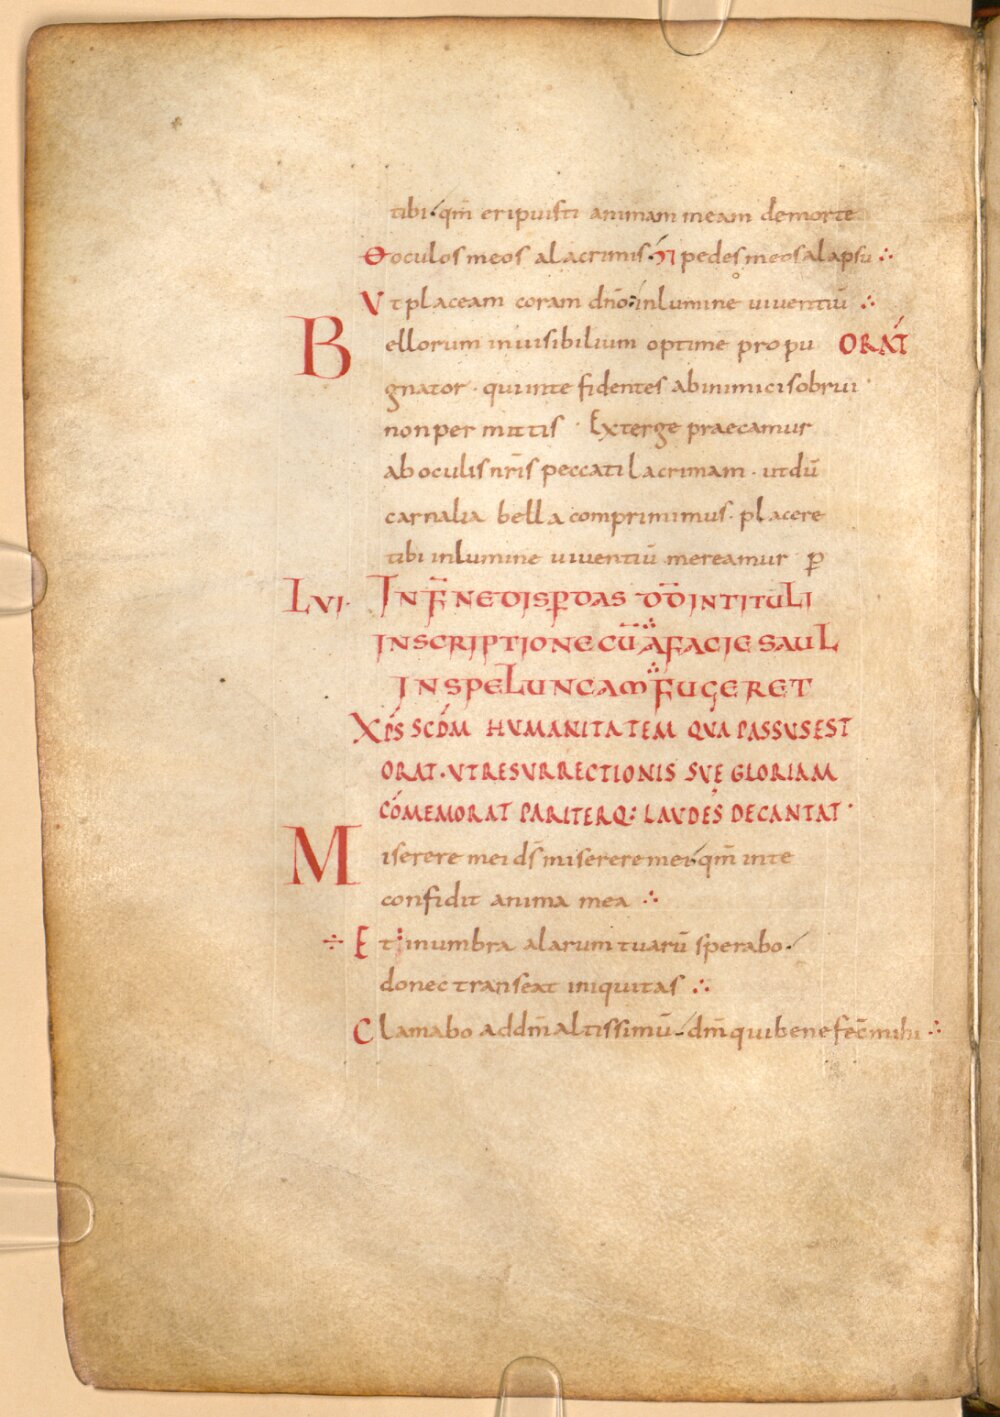 tibi qm̄ eripuisti animam meam demorte
Θoculos meos alacrimis· ⁊ pedes meos alapsu ∴
Vt placeam coram dn̄o inlumine uiuentiū ∴
Bellorum inuisibilium optime propu ORAT̄
gnator · quiinte fidentes abinimicisobrui
nonpermittis · Exterge praecamur
aboculisnr̄is peccati lacrimam · utdū
carnalia bella comprimimus · placere
tibi inlumine uiuentiū mereamur p̄
LVI· IN F̄ NEDISP̄DAS D̄D INTITULI
INSCRIPTIONE CŪ AFACIE SAUL
INSPELUNCAM FUGERET
XP̄S SCD̄M HUMANITATEM QUA PASSUSEST
ORAT·UTRESURRECTIONIS SUE GLORIAM
CŌMEMORAT PARITERQ: LAUDES DECANTAT·
Miserere mei ds̄ miserere mei qm̄ inte
confidit anima mea ∴
÷ Et : inumbra alarum tuarū sperabo
donec transeat iniquitas ∴
Clamabo addm̄ altissimū dm̄ quibenefec̄ mihi ∴